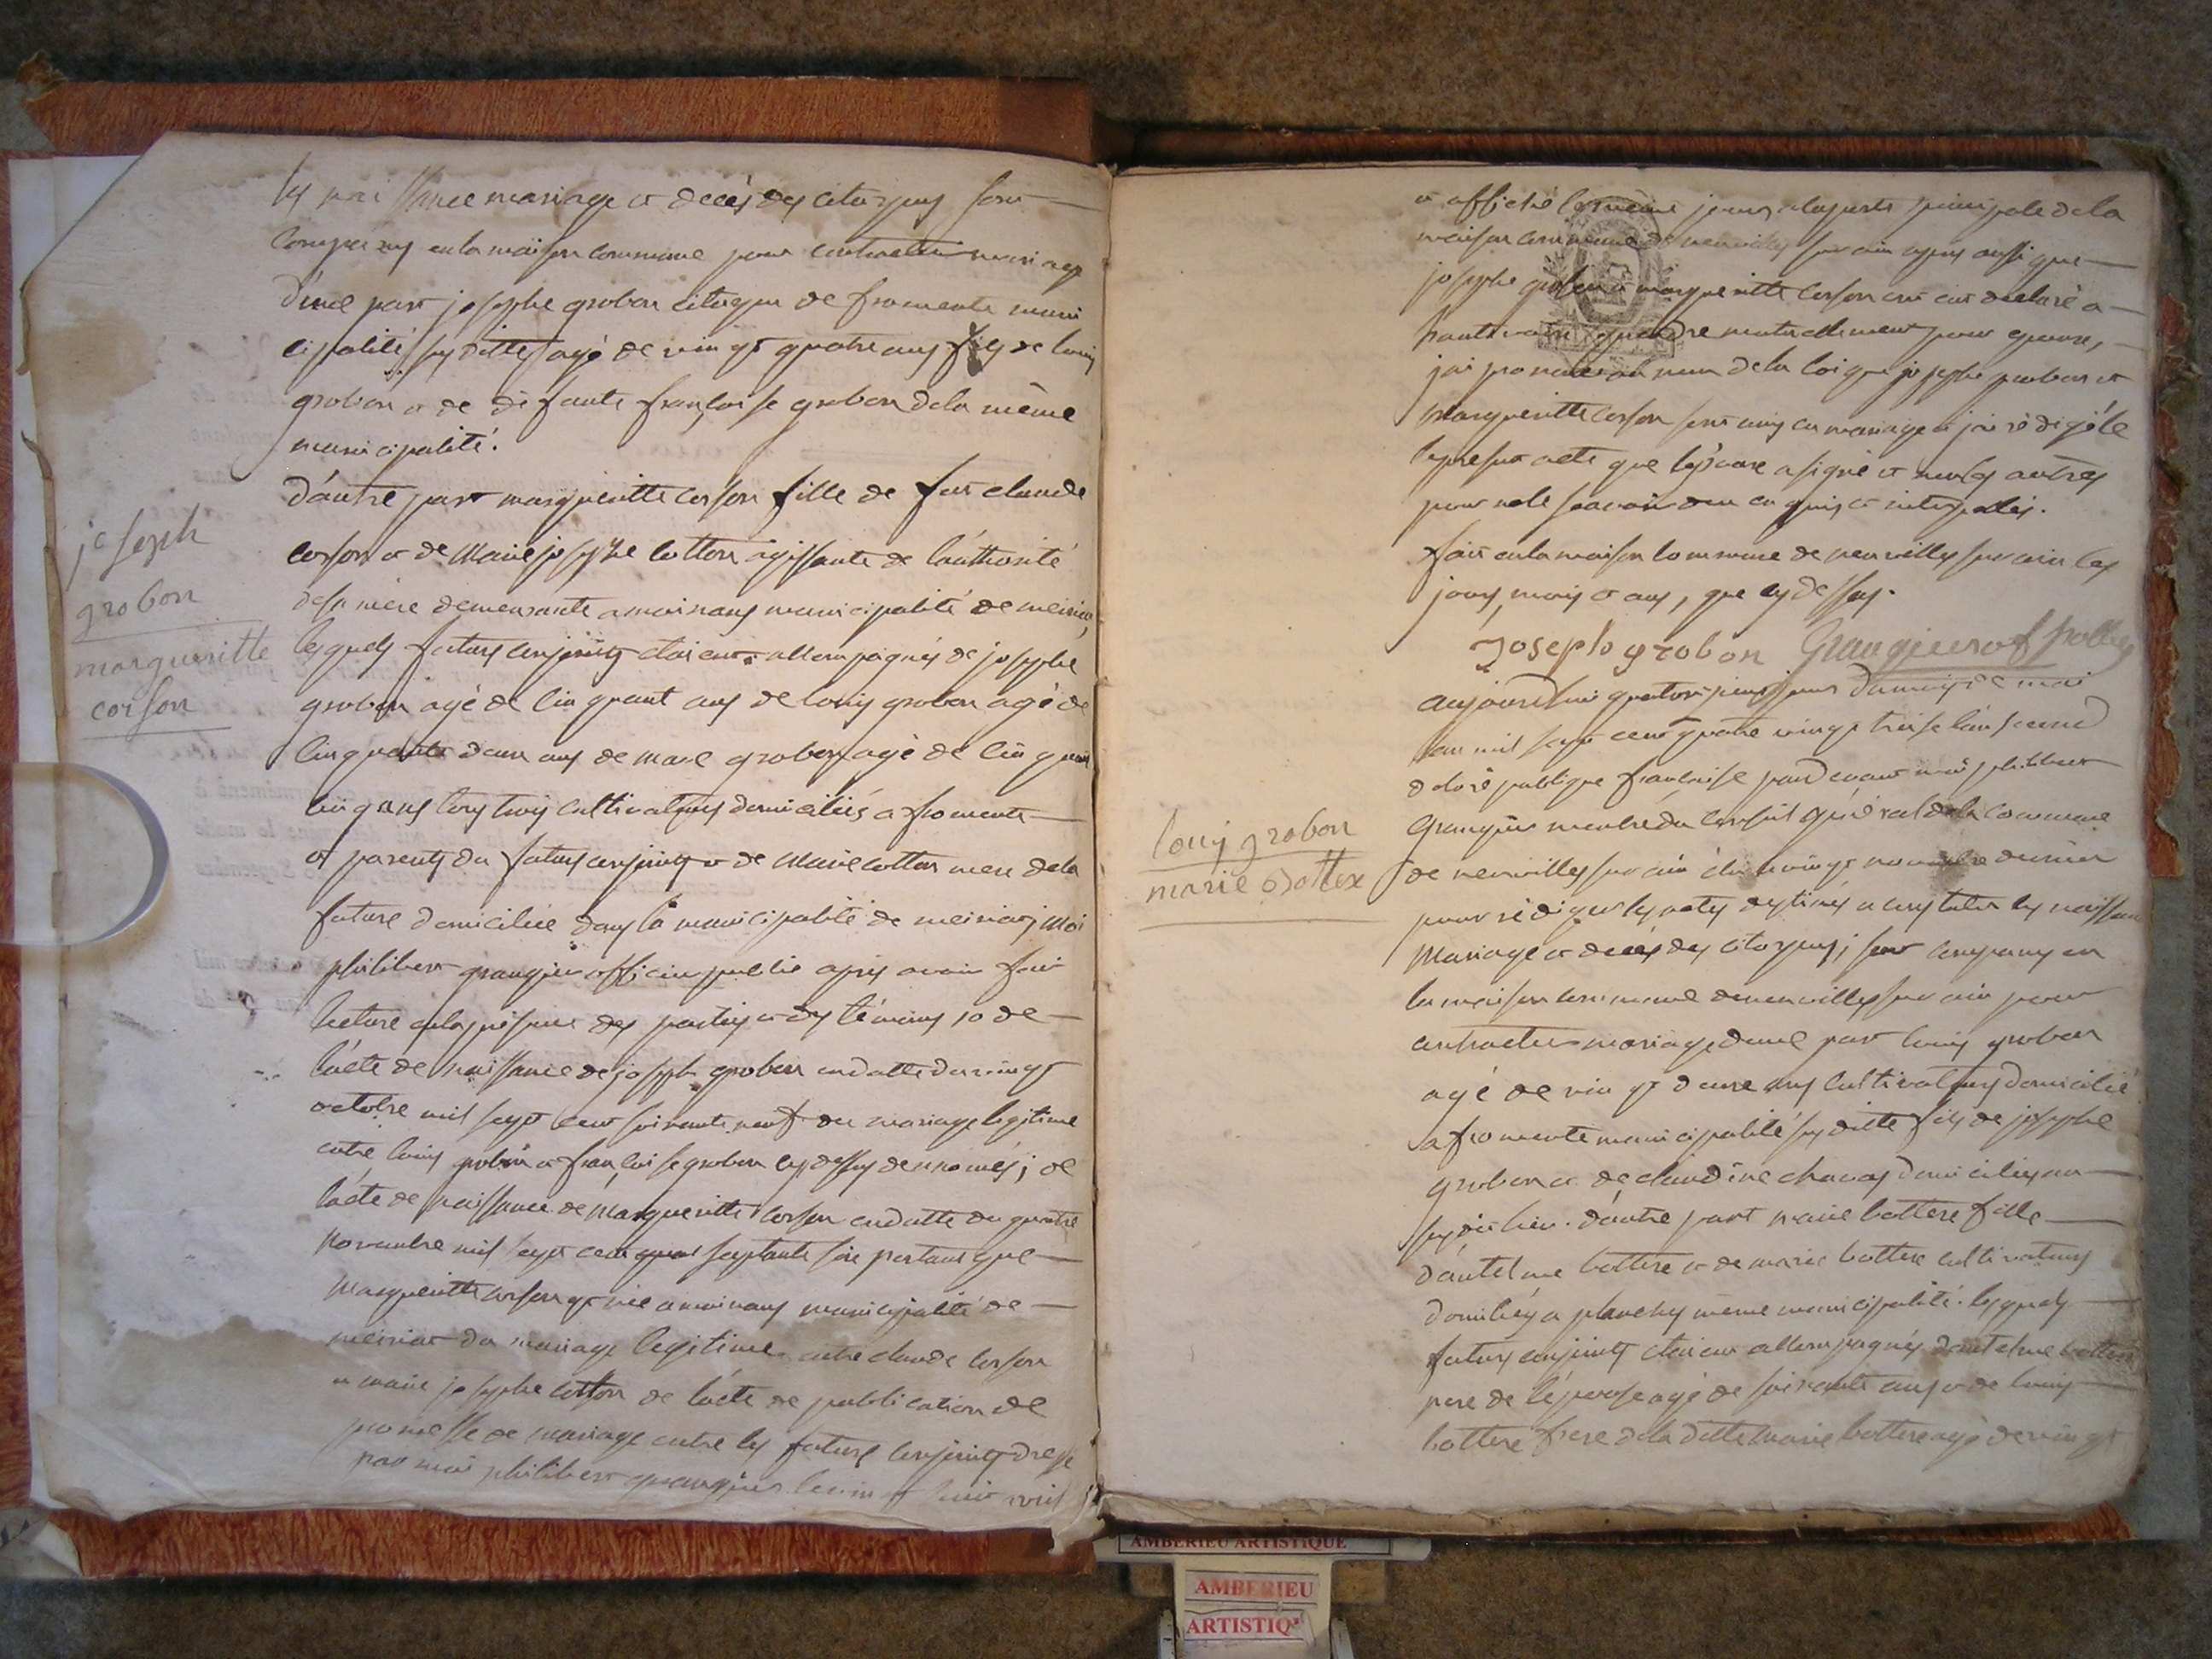 les naissance mariage et decès des citoyens sont
comparus en la maison commune pour contracter mariage
d'une part josephe grobon citoyen de fromente muni
cipalité sus ditte agé de vingt quatre ans fils de louis
grobon et de défunte françoise grobon de la même
municipalité.
d'autre part margueritte corson fille de feu claude
corson et de Marie josephe cotton agissante de l'authorité
de sa mère demeurante a moinans municipalité de meiriat,
lesquels futurs conjoints étoient accompagnés de josephe
grobon agé de cinquant ans de louis grobon agé de
cinquante deux ans de marc grobon agé de cinquant
cinq ans tous trois cultivateurs domiciliés a fromente
et parents du futurs conjoints et de Marie cotton mere de la
future domiciliée dans la municipalité de meiriat; Moi
philibert grangier officier public après avoir fait
lecture en la présence des parties et des témoins 1o de
l'acte de naissance de joseph grobon en datte du vingt
octobre mil sept cent soixante neuf du mariage legitime
entre louis grobon et françoise grobon cy dessus dennomés; de
l'acte de naissance de Margueritte corson en datte du quatre
novembre mil sept cent septante six portant que
margueritte corson est née a moinans municipalité de
meiriat du mariage legitime entre claude corson
et marie josephe cotton de l'acte de publication de
promesse de mariage entre les futurs conjoints dressé
par moi philibert grangier le
joseph
grobon
margueritte
corson
et affiché le même jour a la porte principale de la
maison commune de neuville sur ain après aussi que
josephe grobon et margueritte corson ont eut declaré a
haute voix se prendre mutuellement pour epoux,
jai prononcé au nom de la loi que josephe grobon et
Margueritte corson sont unis en mariage et jai rédigé le
le present acte que l'époux a signé et non les autres
pour ne le sçavoir de ce enquis et interpellés.
fait en la maison commune de neuville sur ain les
jours, mois et ans, que cy dessus.
Joseph grobon Grangier off public
aujourdhui quatorze du mois de mai
an mil sept cent quatre vingt treise l'an second
de la république françaisse pardevant moi philibert
Grangier membre du conseil général de la commune
de neuville sur ain élu le vingt novembre dernier
pour rédiger les actes destinés a constater les naissance
Mariage et decés des citoyens; sont comparus en
la maison commune de neuville sur ain pour
contracter mariage d'une part louis grobon
agé de vingt deux ans cultivateurs domicilié
a fromente municipalité sus ditte fils de josephe
grobon et de claudine chavas domiciliés au
sus dit lieu. d'autre part marie bottexe fille
d'antelme bottexe et de marie bottexe cultivateurs
domiliés a planches même municipalité. lesquels
futurs conjoints étoient accompagnés d'antelme bottexe
pere de l'épouse agé de soixante ans et de louis
bottexe frere de la ditte Marie bottexe agé de vingt
louis grobon
marie bottex
AMBERIEU ARTISTIQUE
AMBERIEU
ARTISTIQ